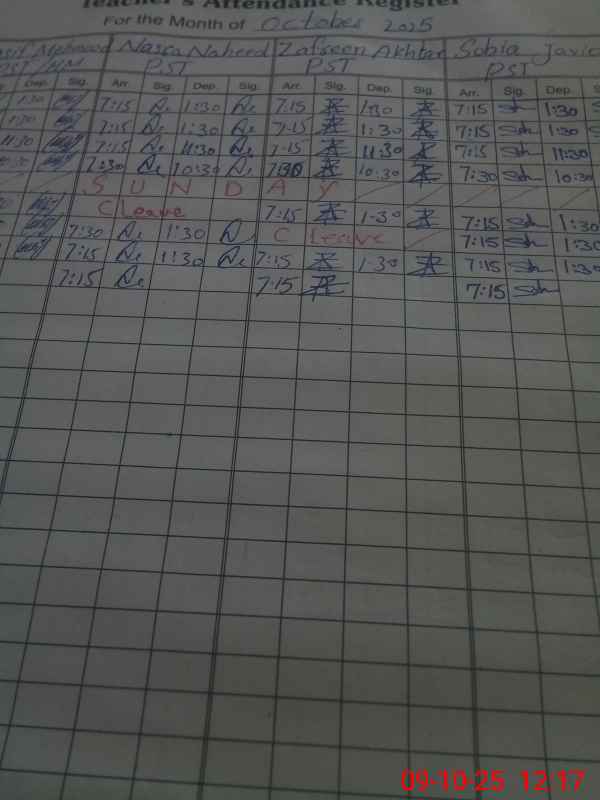 Teacher's Attendance Register
For the Month of October 2025
Nasra Naheed Zafreen Akhtar Sobia
PST PST PST
Dep. Sig. Arr. Sig. Dep. Sig. Arr. Sig. Dep. Sig. Arr. Sig. Dep.
1:30 7:15 1:30 7:15 1:30 7:15 1:30
1:30 7:15 1:30 7:15 1:30 7:15 1:30
11:30 7:15 11:30 7:15 11:30 7:15 11:30
10:30 7:30 10:30 7:30 10:30 7:30 10:30
S U N D A Y
C leave 7:15 1:30 7:15 1:30
7:30 1:30 C leave 7:15 1:30
7:15 1:30 7:15 1:30 7:15 1:30
7:15 7:15 7:15
09-10-25 12:17